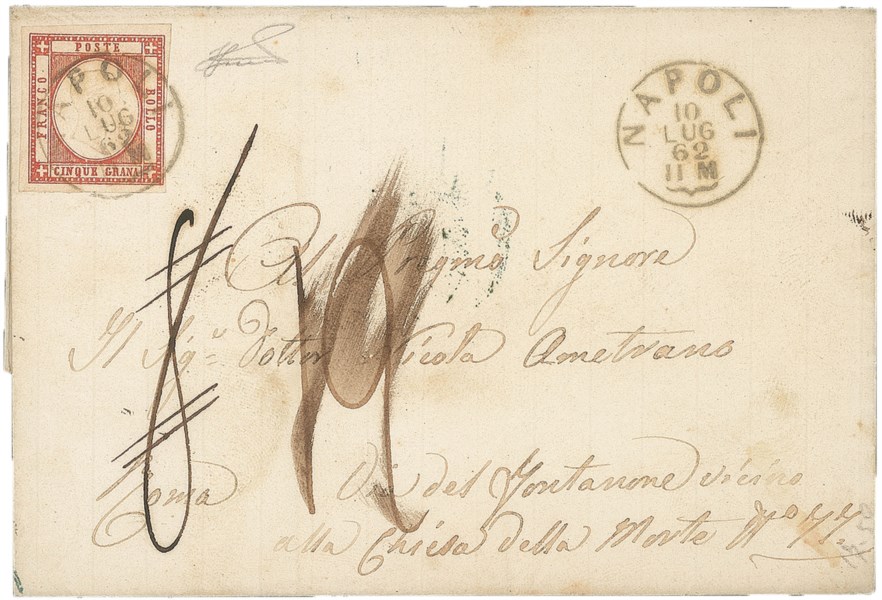 POSTE
FRANCO
BOLLO
CINQUE GRANA
NAPOLI
10
LUG
62
M
NAPOLI
10
LUG
62
11 M
Al Pregmo Signore
Il Sigr Dottor Nicola Ametrano
Roma Via del Fontanone vicino
alla Chiesa della Morte No 77